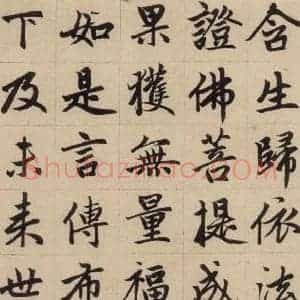 含生歸依法
證佛菩提成
果獲無量福
如是言傳布
下及未来世